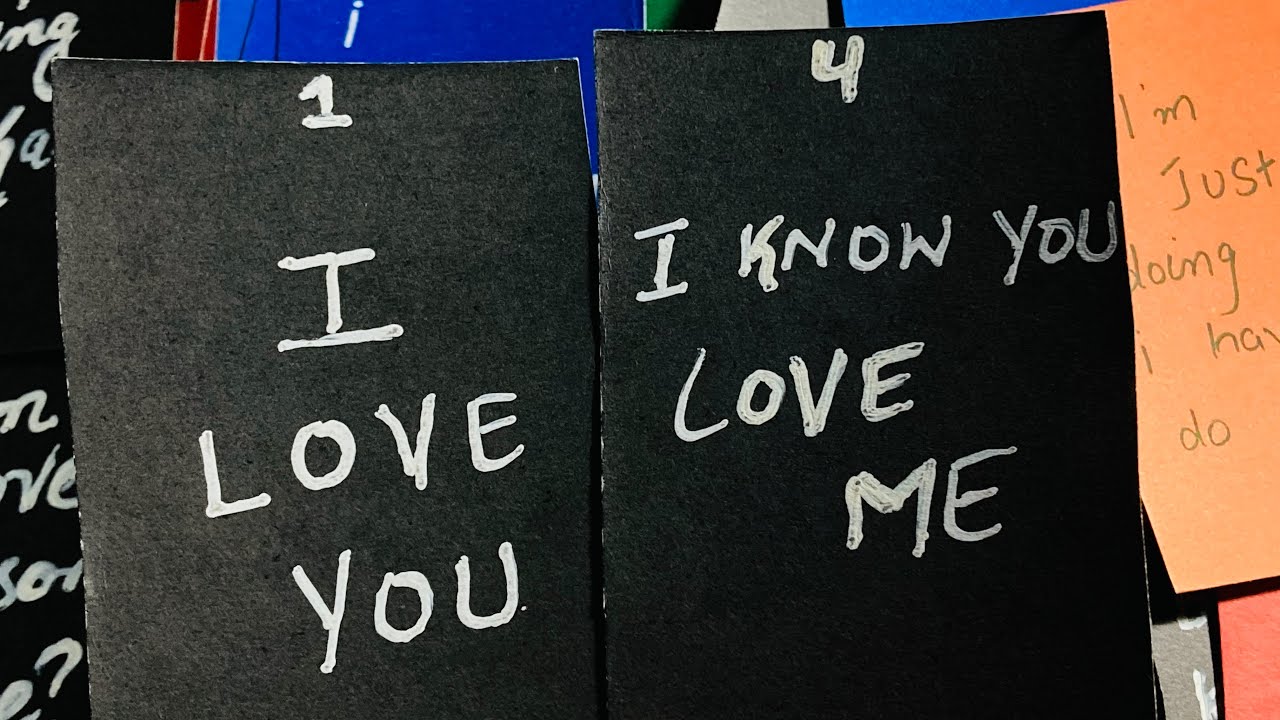 ing
ha
i
1
I
LOVE
YOU
4
I KNOW YOU
LOVE
ME
I'm
Just
doing
i hav
do